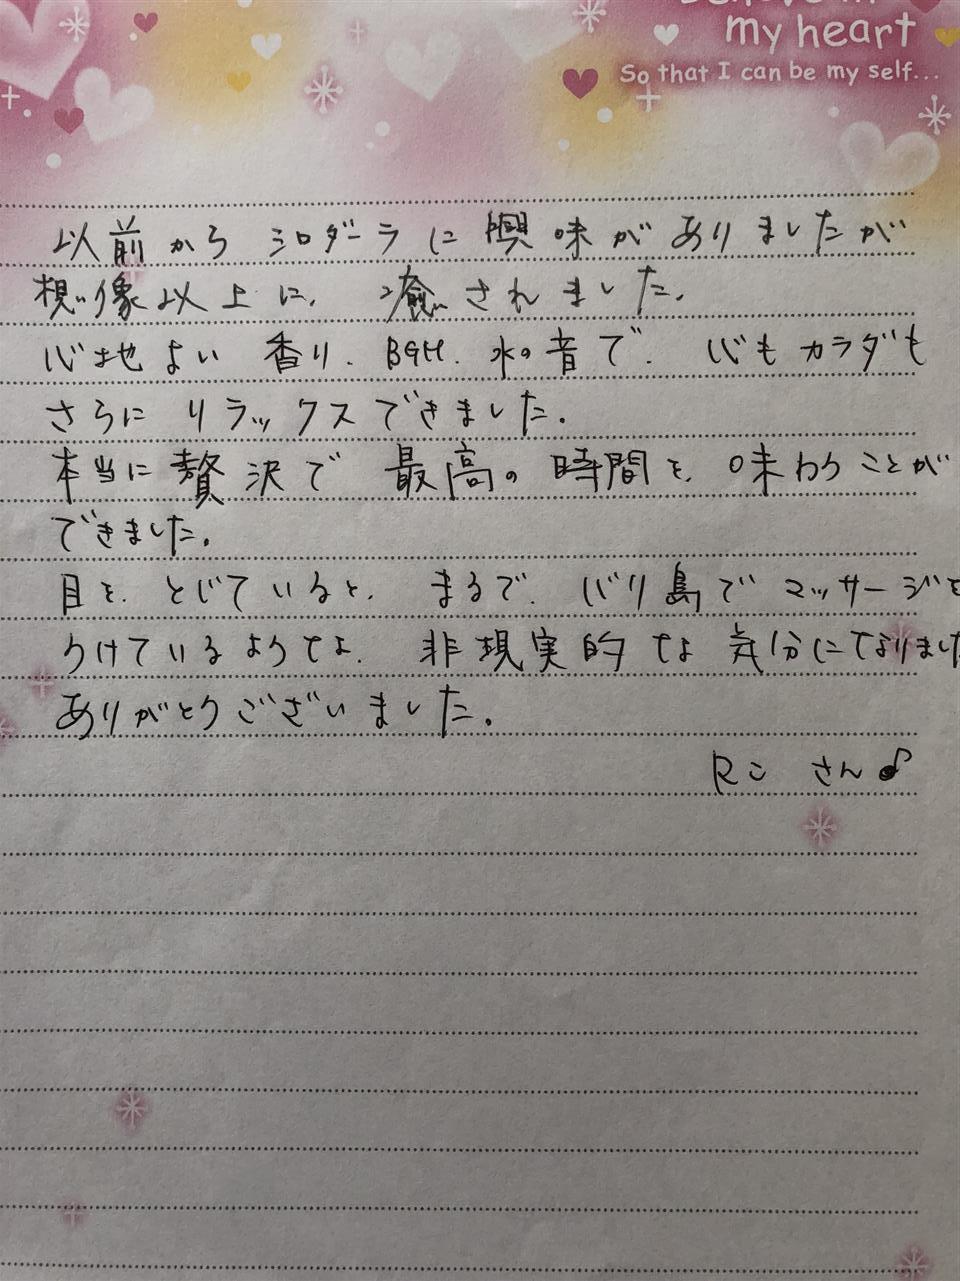 my heart
So that I can be my self...
以前から シロダーラ に 興味が ありましたが
想像以上に、癒されました。
心地よい 香り、BGM、水の音で、心もカラダも
さらに リラックスできました。
本当に 贅沢で 最高の 時間を、味わうことが
できました。
目を、とじていると、まるで、バリ島で マッサージを
うけているような、非現実的な 気分になりました
ありがとうございました。
Rこ さん♪